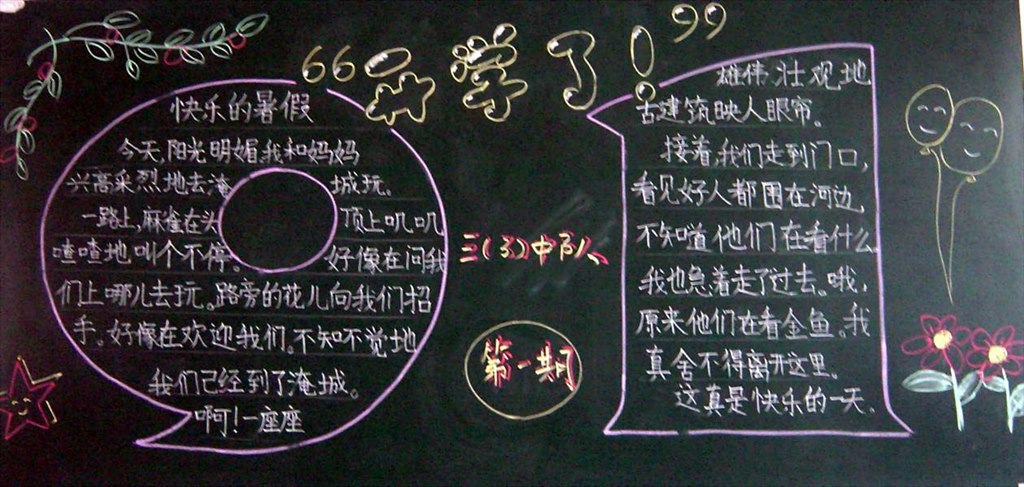 “开学了！”
快乐的暑假
今天，阳光明媚，我和妈妈
兴高采烈地去淹城玩。
一路上，麻雀在头顶上叽叽
喳喳地叫个不停。好像在问我
们上哪儿去玩。路旁的花儿向我们招
手。好像在欢迎我们。不知不觉地
我们已经到了淹城。
啊！一座座
三（3）中队
第一期
雄伟壮观地
古建筑映入眼帘。
接着，我们走到门口，
看见好人都围在河边，
不知道他们在看什么
我也急着走了过去。哦，
原来他们在看金鱼。我
真舍不得离开这里。
这真是快乐的一天。